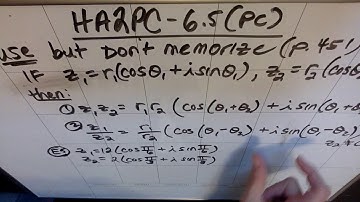 HA2PC-6.5(PC)
use but Don't memorize (p. 451
IF z₁=r₁(cosθ₁+isinθ₁), z₂=r₂(cosθ
then:
① z₁z₂= r₁r₂ (cos(θ₁+θ₂) + isin(θ₁+θ
② z₁/z₂ = r₁/r₂ (cos(θ₁-θ₂) + isin(θ₁-θ₂)
z₂≠0
Ex z₁=12(cos π/6 + isin π/6)
z₂= 2(cos π/6 + i sin π/6)